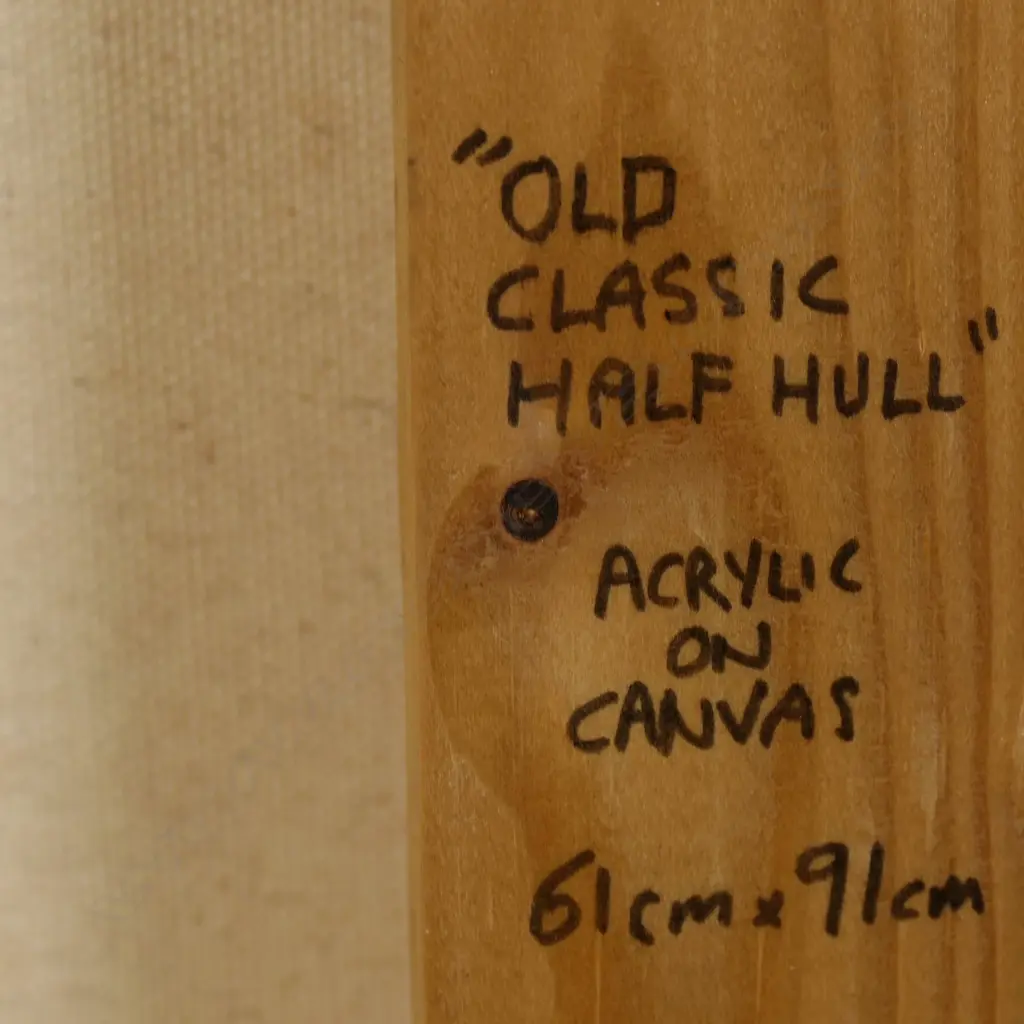 "OLD
CLASSIC
HALF HULL"
ACRYLIC
ON
CANVAS
61cm x 91cm